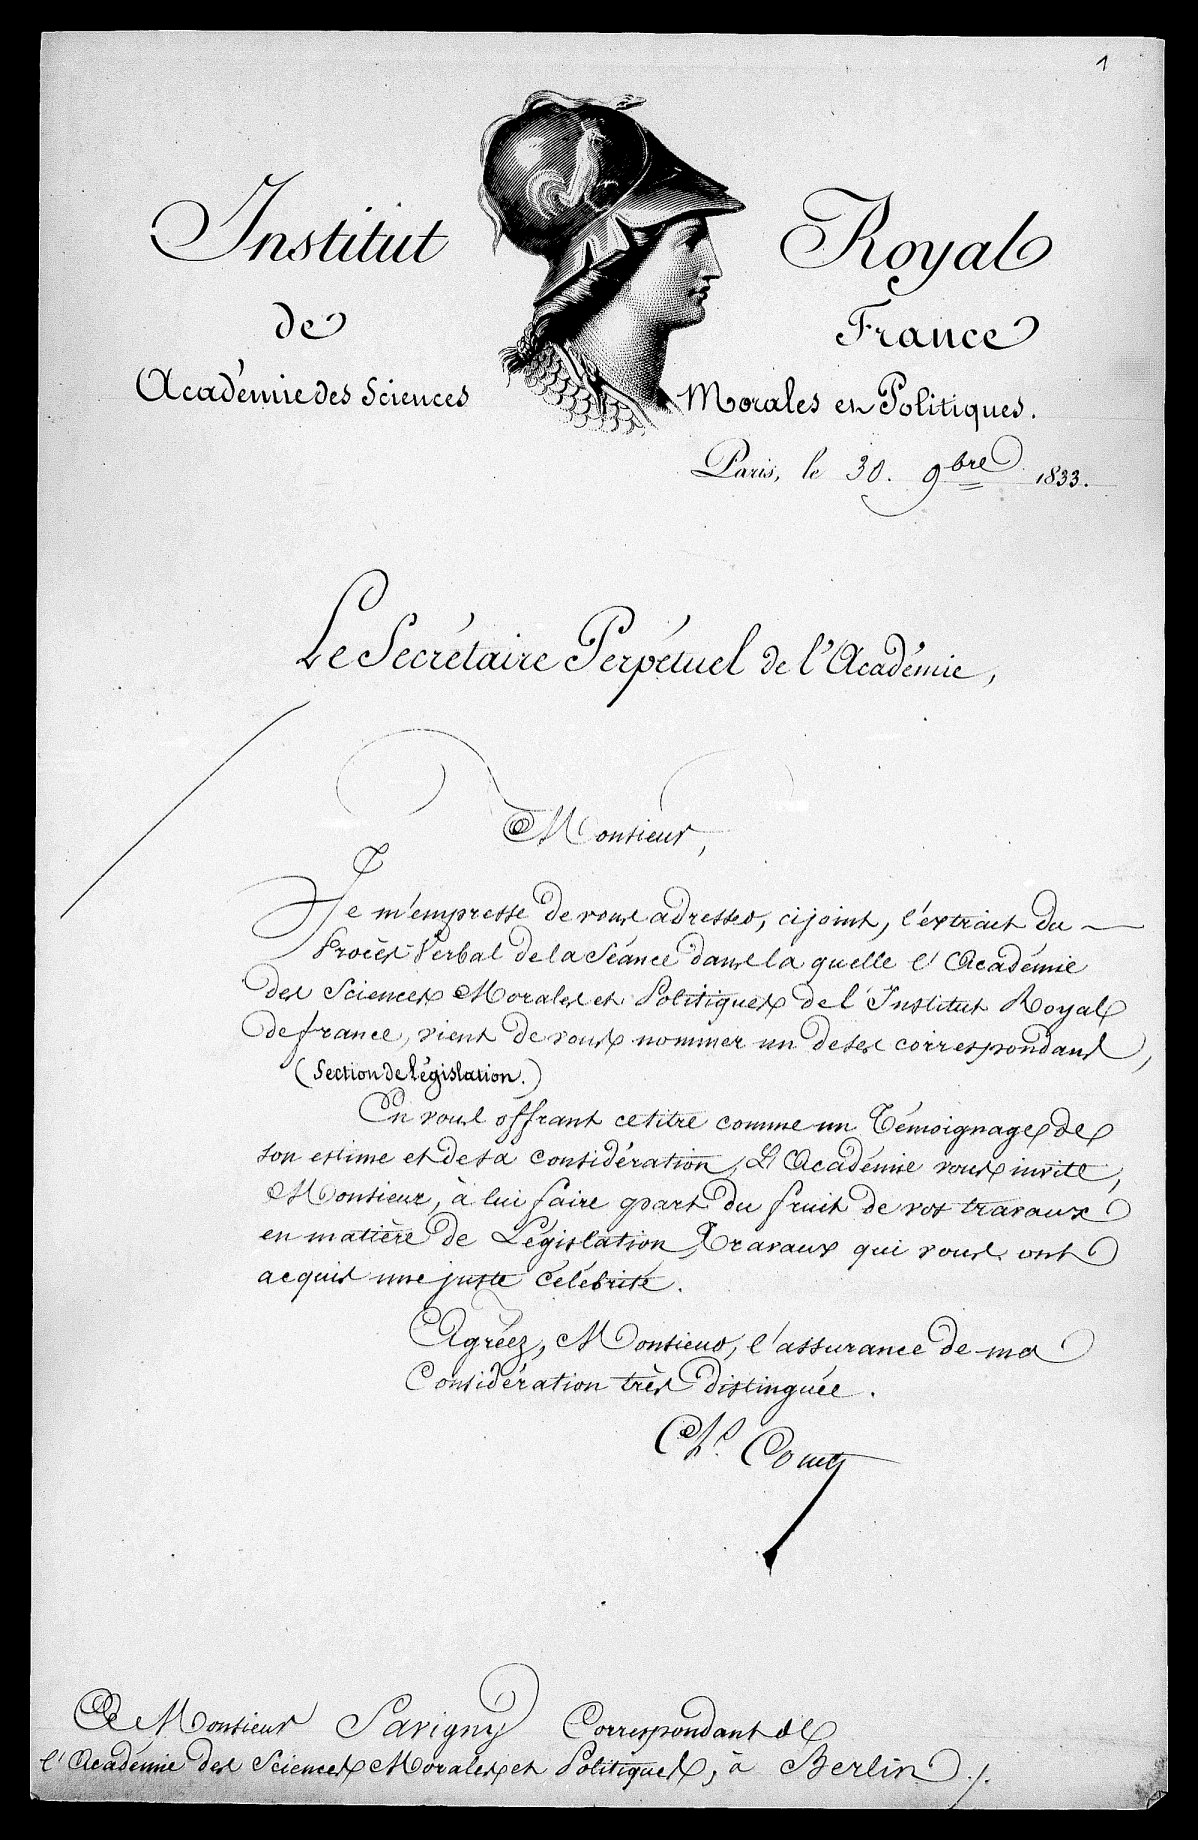 1
Institut Royal
de France
Académie des Sciences Morales et Politiques.
Paris, le 30. 9bre 1833.
Le Secrétaire Perpétuel de l'Académie,
Monsieur,
Je m'empresse de vous adresser, cijoint, l'extrait du
Procès Verbal de la Séance dans la quelle l'Académie
des Sciences Morales et Politiques de l'Institut Royal
de france, vient de vous nommer un de ses correspondans,
(Section de Législation.)
En vous offrant ce titre comme un Témoignage de
son estime et de sa considération, L'Académie vous invite,
Monsieur, à lui faire part du fruit de vos travaux
en matière de Législation, Travaux qui vous ont
acquis une juste célébrité.
Agréez, Monsieur, l'assurance de ma
Considération très distinguée.
Ch. Comte
A Monsieur Savigny Correspondant de
l'Académie des Sciences Morales et Politiques, à Berlin ./.